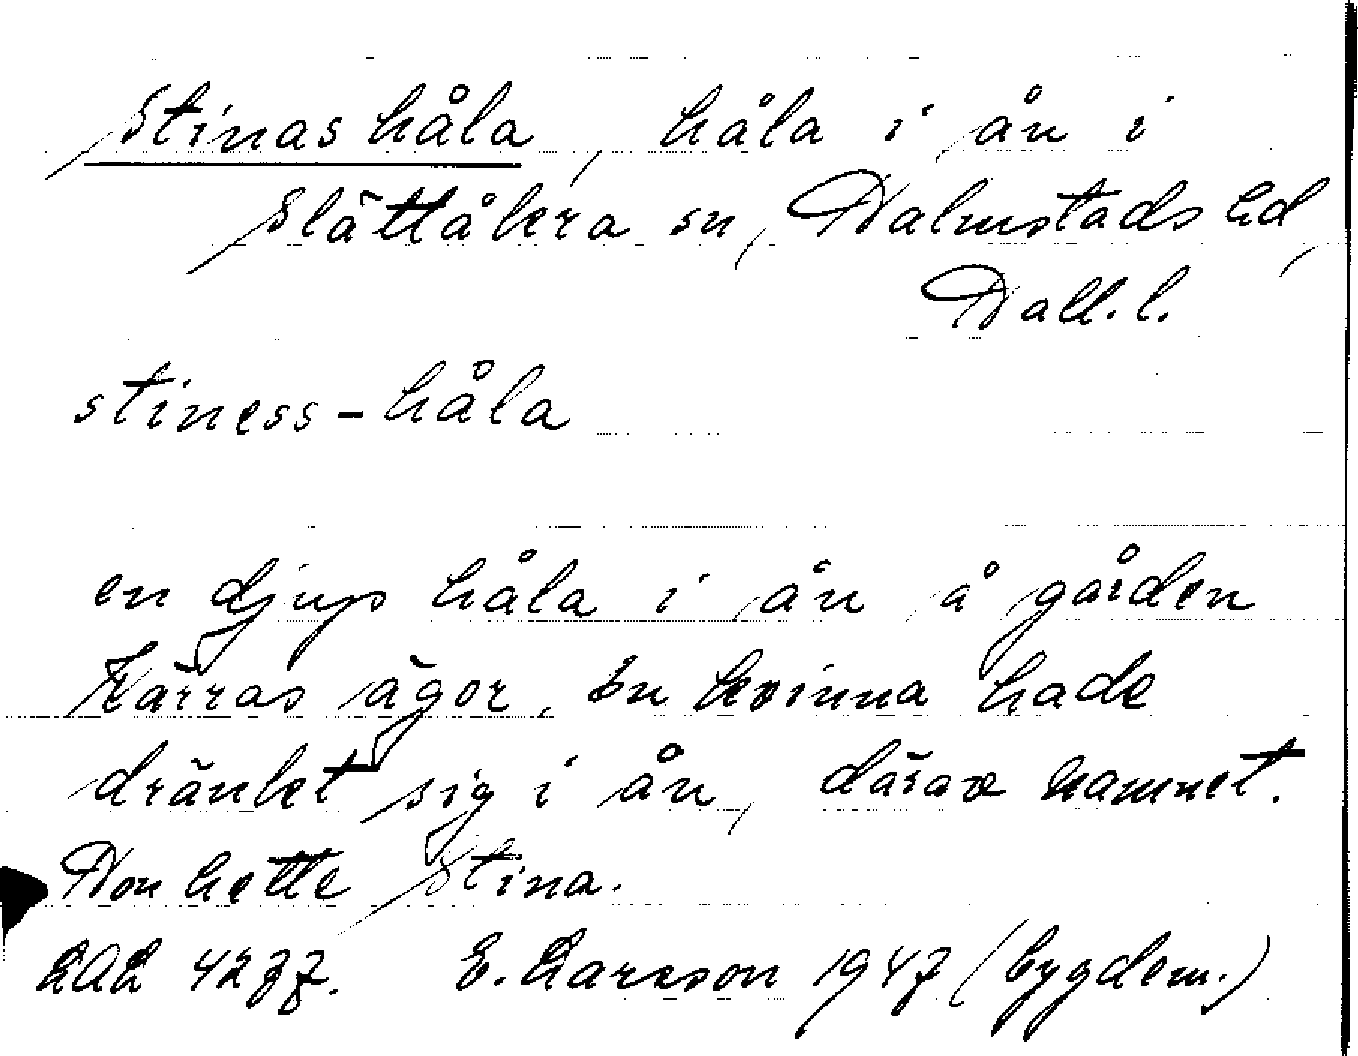 Stinas håla, håla i ån i
Slättåkra sn, Halmstads hd,
Hall. l.
stiness-håla
en djup håla i ån å gården
Kärras ägor. En kvinna hade
dränket sig i ån, därav namnet.
Hon hette Stina.
LAL 4277. E. Larsson 1947 (bygdem.)